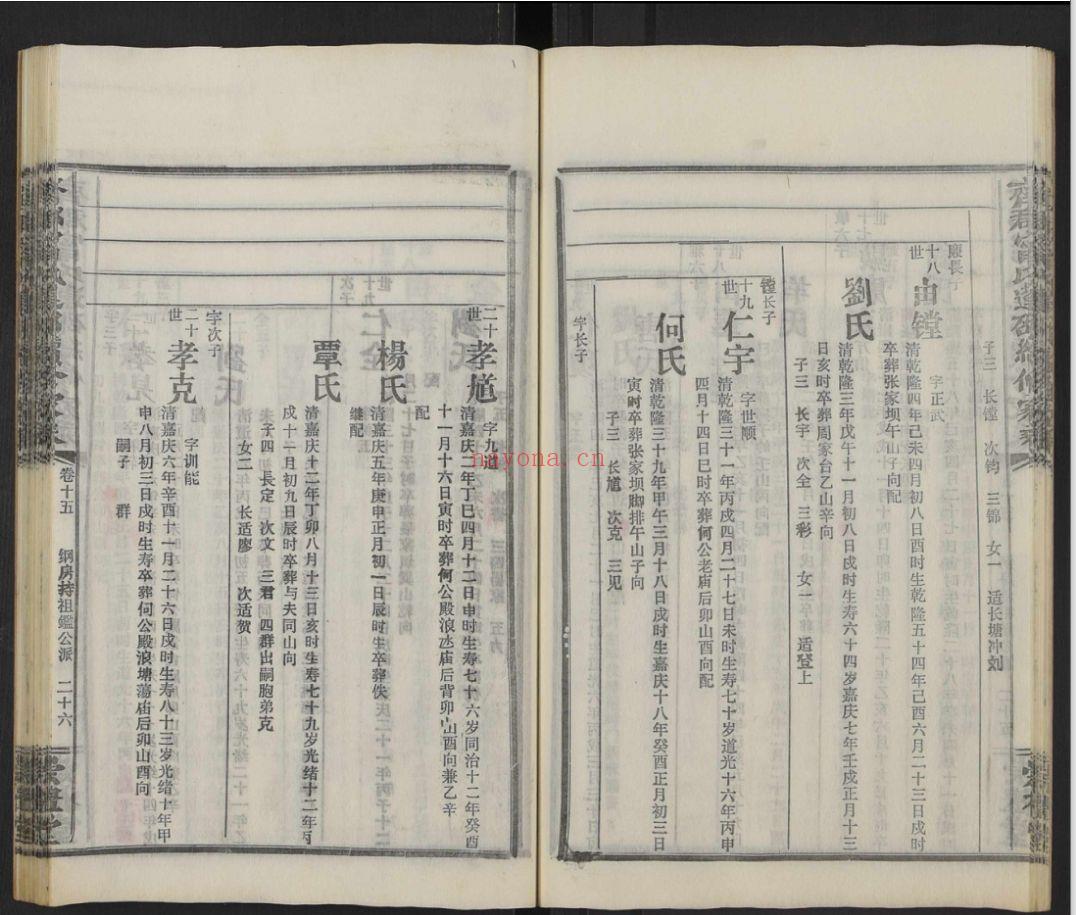 子三 长镗 次钧 三锦 女一 适长塘冲刘
慶長子
十八世
由镗 字正武
清乾隆四年己未四月初八日酉时生乾隆五十四年己酉六月二十三日戌时
卒葬张家坝午山子向配
劉氏
清乾隆三年戊午十一月初八日戌时生寿六十四岁嘉庆七年壬戌正月十三
日亥时卒葬周家台乙山辛向
子三 长宇 次全 三彩 女一 适登上
镗长子
十九世
仁宇 字世顺
清乾隆三十一年丙戌四月二十七日未时生寿七十岁道光十六年丙申
四月十四日巳时卒葬何公老庙后卯山酉向配
何氏
清乾隆三十九年甲午三月十八日戌时生嘉庆十八年癸酉正月初三日
寅时卒葬张家坝脚排午山子向
子三 长馗 次克 三见
宇长子
二十世
孝馗 字九道
清嘉庆二年丁巳四月十二日申时生寿七十六岁同治十二年癸酉
十一月十六日寅时卒葬何公殿浪氹庙后背卯山酉向兼乙辛
配
楊氏
清嘉庆五年庚申正月初一日辰时生卒葬佚
继配
覃氏
清嘉庆十二年丁卯八月十三日亥时生寿七十九岁光绪十二年丙
戌十二月初九日辰时卒葬与夫同山向
子四 長定 次文 三君 四群出嗣胞弟克
女二 长适廖 次适贺
宇次子
二十世
孝克 字训能
清嘉庆六年辛酉十一月二十六日戌时生寿八十三岁光绪十年甲
申八月初三日戌时生寿卒葬伺公殿浪塘蕩庙后卯山酉向
嗣子 群
卷十五 纲房持祖鑑公派 二十六